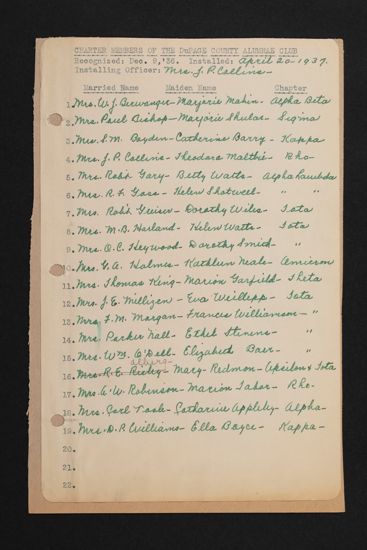 CHARTER MEMBERS OF THE DuPAGE COUNTY ALUMNAE CLUB
Recognized: Dec. 9,'36. Installed: April 20-1937.
Installing Officer: Mrs. J. P. Collins-
Married Name Maiden Name Chapter
1. Mrs. W. J. - Marjorie Mahin - Alpha Beta
2. Mrs. Paul Bishop - Marjorie - Sigma
3. Mrs. S. M. Boyden - Catherine Barry - Kappa
4. Mrs. J. P. Collins - Theodora Maltbie - Rho-
5. Mrs. Robt Gary - Betty Watts - Alpha Lambda
6. Mrs. R. F. Goss - Helen Shotwell - " "
7. Mrs. Robt - Dorothy Wiles - Iota
8. Mrs. M. B. Harland - Helen Watts - Iota
9. Mrs. O. C. Heywood - Dorothy Smid - "
10. Mrs. G. A. Holmes - Kathleen Neale - Omicron
11. Mrs. Thomas King - Marion Garfield - Theta
12. Mrs. J. E. Milligen - Eva - Iota
13. Mrs. F. M. Morgan - Frances Williamson - "
14. Mrs. Parker Nall - Ethel Stevens - "
15. Mrs. Wm. O'Dell - Elizabeth Baer - "
16. Mrs. R. E. - Mary Redmon - Upsilon & Iota
17. Mrs. A. W. Robinson - Marion Tabor - Rho-
18. Mrs. Earl - Catharine Appleby - Alpha-
19. Mrs. D. R. Williams - Ella Boyce - Kappa-
20.
21.
22.